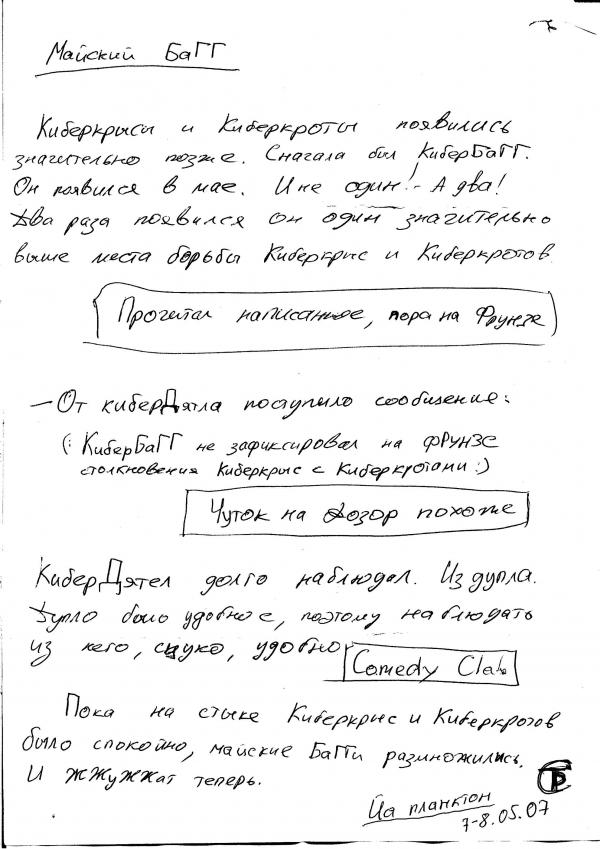 Майский БаГГ
Киберкрысы и Киберкроты появились
значительно позже. Сначала был КиберБаГГ.
Он появился в мае. И не один! - А два!
Два раза появился он один значительно
выше места борьбы Киберкрис и Киберкротов
Прочитал написанное, пора на Фрунзе
— От киберДятла поступило сообщение:
(: КиберБаГГ не зафиксировал на ФРУНЗЕ
столкновения Киберкрыс с Киберкротами :)
Чуток на Дозор похоже
КиберДятел долго наблюдал. Из дупла.
Дупло было удобное, поэтому наблюдать
из него, сцуко, удобно
Comedy Clab
Пока на стыке Киберкрис и Киберкротов
было спокойно, майские БаГГи размножились.
И ЖЖужжат теперь.
Йа планктон
7-8.05.07